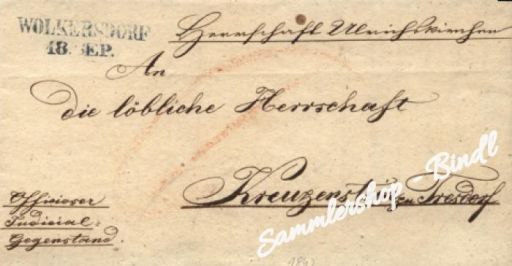 WOLKERSDORF
18. SEP.
Herrschaft Ulrichskirchen
An
die löbliche Herrschaft
Kreuzenstein zu Tresdorf
Officioser
Judicial-
Gegenstand.
Sammlershop - Bindl